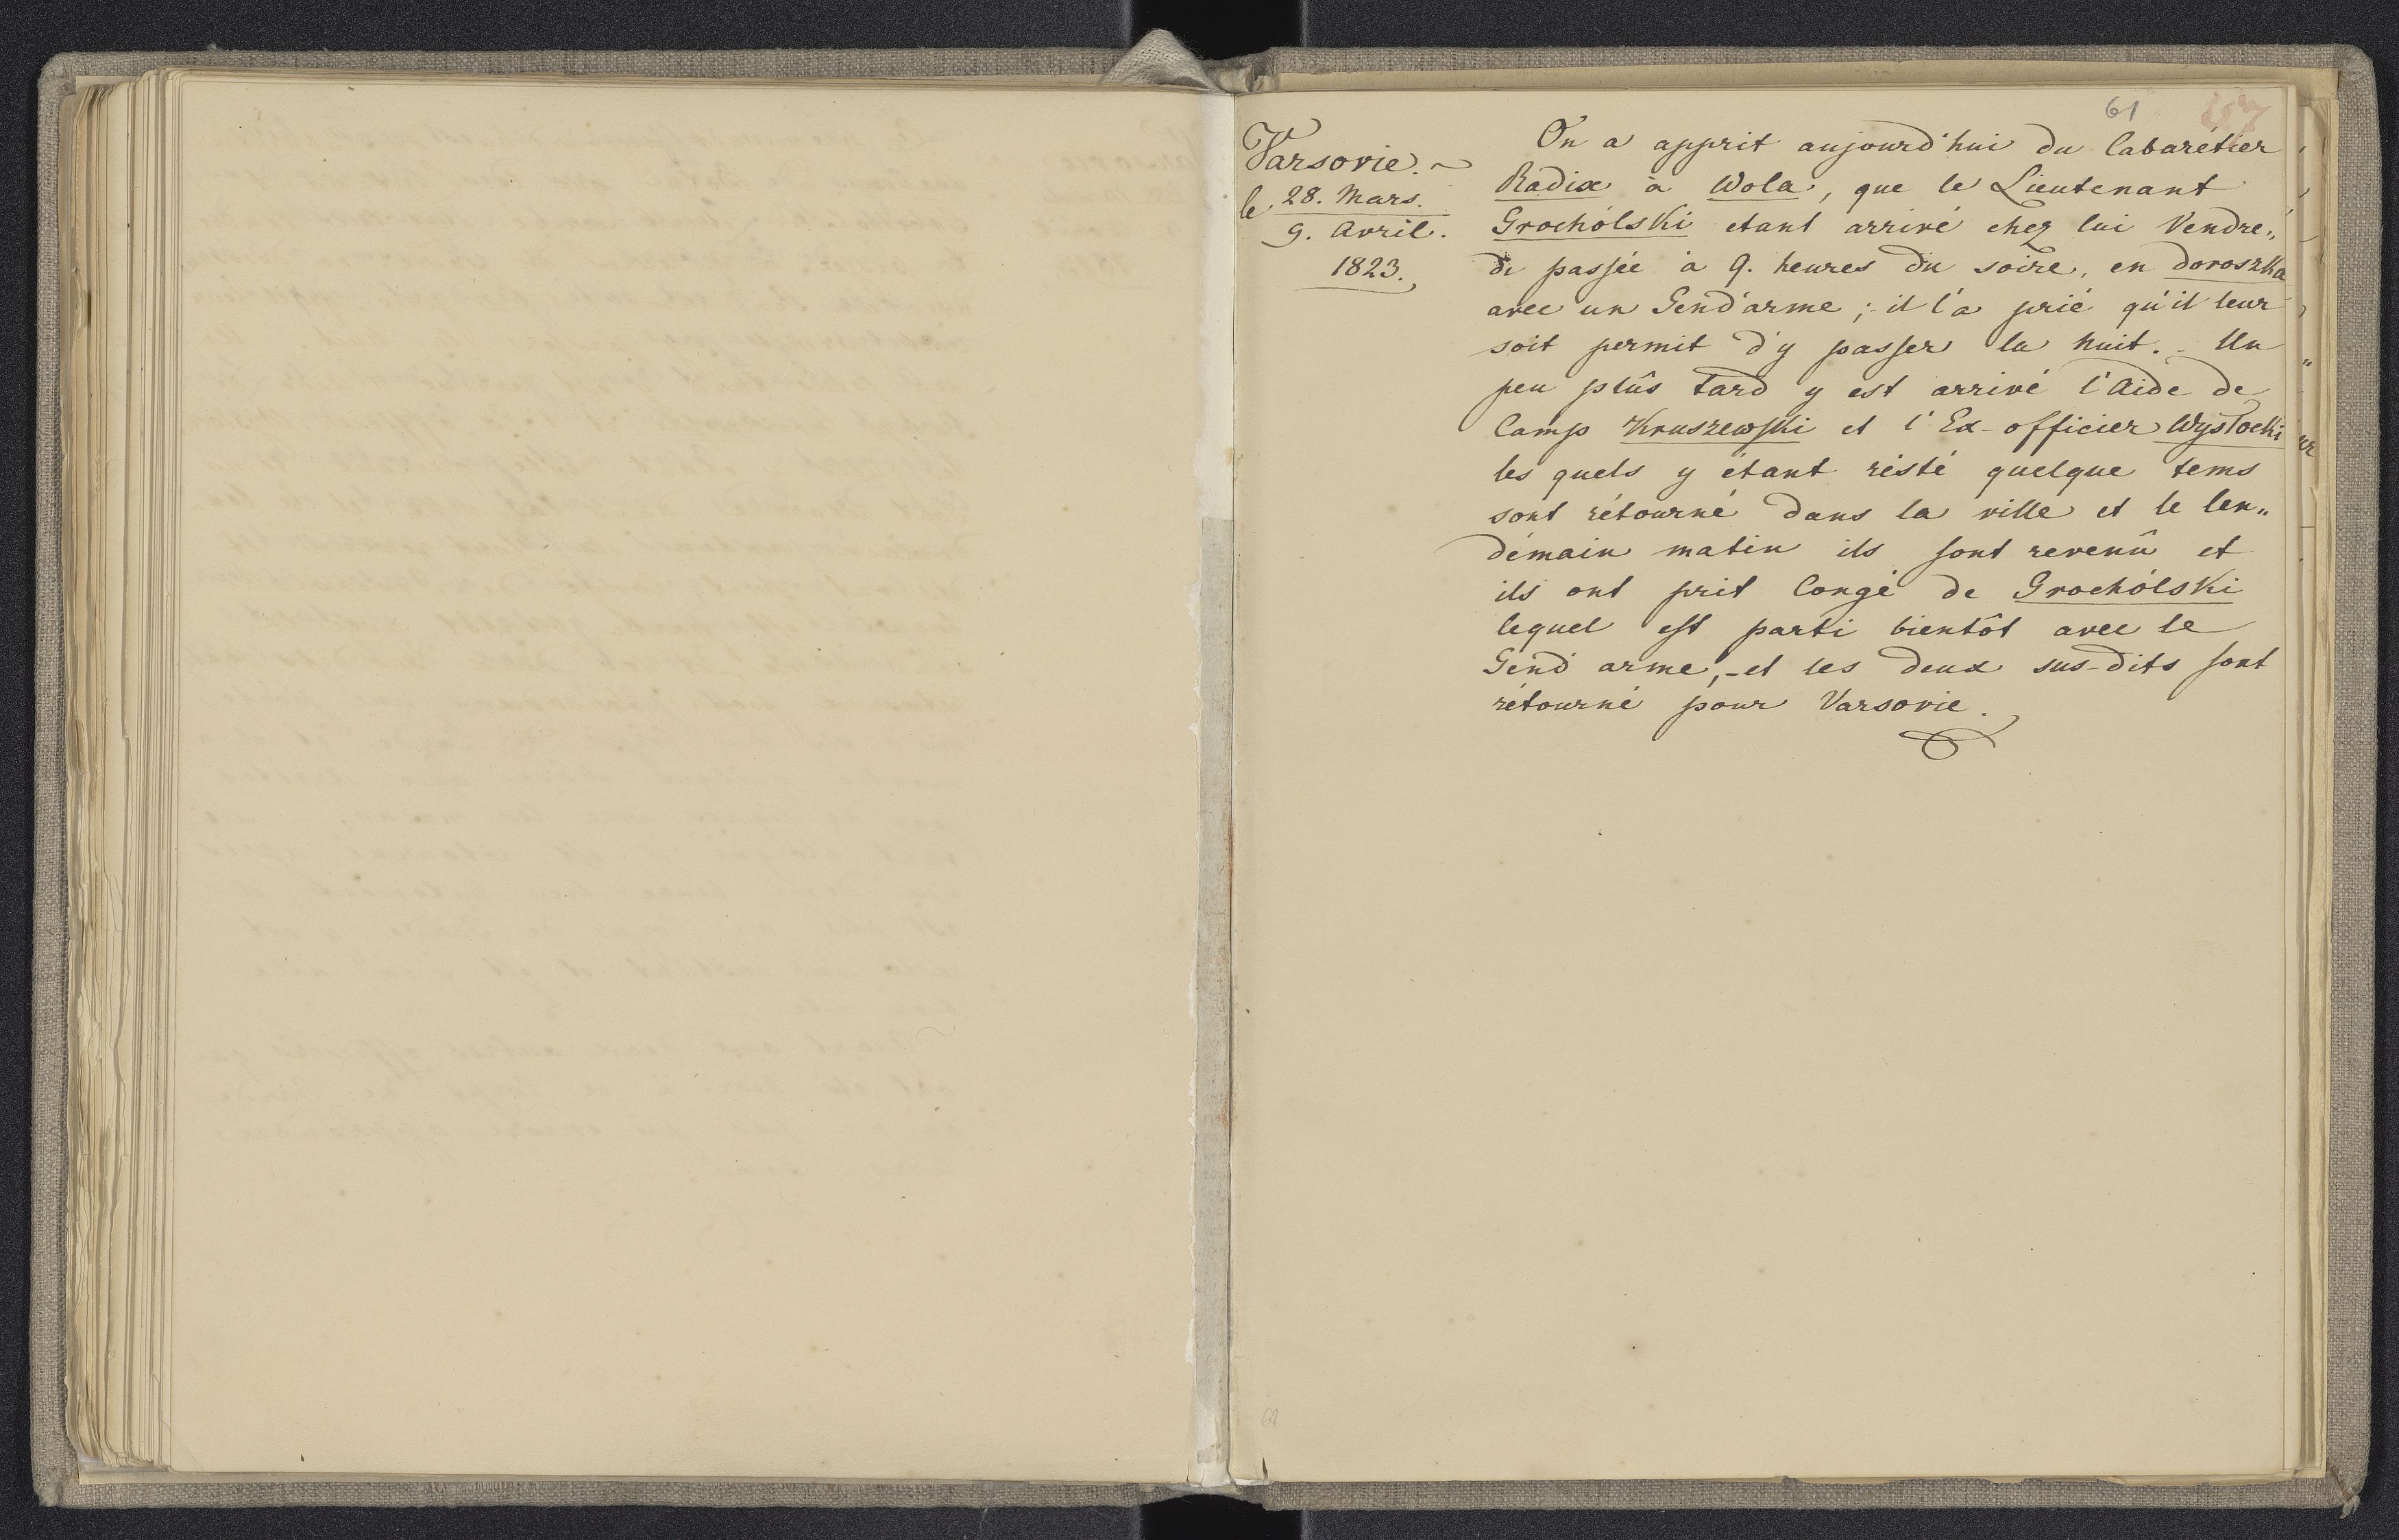 61
Varsovie.
le 28. Mars.
9. Avril.
1823.
On a apprit aujourd'hui du Cabarétier
Radix à Wola, que le Lieutenant
Grochólski etant arrivé chez lui Vendre„
di passée à 9. heures du soire, en doroszka
avec un Gend'arme ; il l'a prié qu'il leur
soit permit d'y passer la nuit. Un
peu plûs tard y est arrivé l'Aide de
Camp Kruszewski et l'Ex-officier Wysłocki
les quels y étant résté quelque tems
sont rétourné dans la ville et le len„
démain matin ils sont revenû et
ils ont prit Congé de Grochólski
lequel est parti bientôt avec le
Gend'arme,-et les deux sus-dits sont
rétourné pour Varsovie.